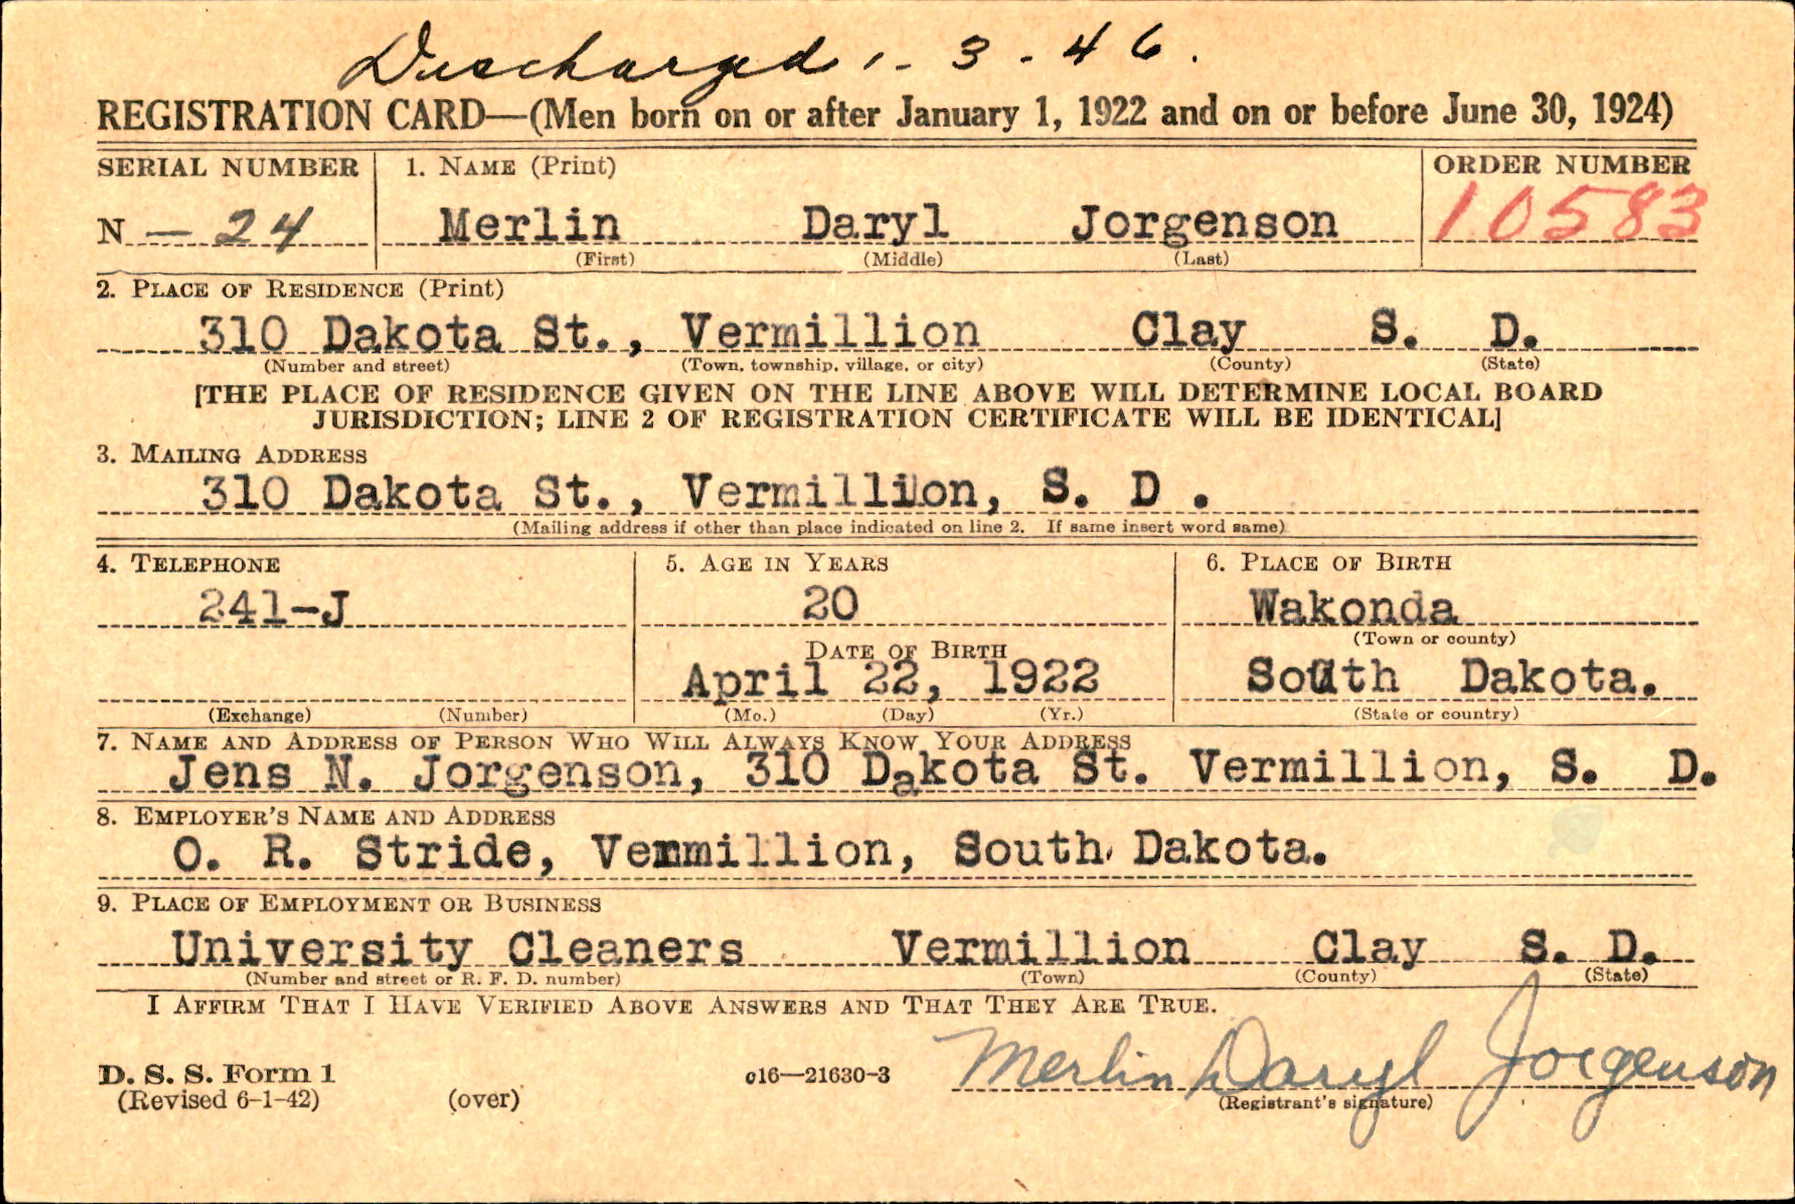 Discharged 1-3-46.
REGISTRATION CARD—(Men born on or after January 1, 1922 and on or before June 30, 1924)
SERIAL NUMBER 1. NAME (Print) ORDER NUMBER
N — 24 Merlin Daryl Jorgenson 10583
(First) (Middle) (Last)
2. PLACE OF RESIDENCE (Print)
310 Dakota St., Vermillion Clay S. D.
(Number and street) (Town, township, village, or city) (County) (State)
[THE PLACE OF RESIDENCE GIVEN ON THE LINE ABOVE WILL DETERMINE LOCAL BOARD
JURISDICTION; LINE 2 OF REGISTRATION CERTIFICATE WILL BE IDENTICAL]
3. MAILING ADDRESS
310 Dakota St., Vermillion, S. D .
(Mailing address if other than place indicated on line 2. If same insert word same)
4. TELEPHONE 5. AGE IN YEARS 6. PLACE OF BIRTH
241-J 20 Wakonda
(Town or county)
DATE OF BIRTH
April 22, 1922 South Dakota.
(Exchange) (Number) (Mo.) (Day) (Yr.) (State or country)
7. NAME AND ADDRESS OF PERSON WHO WILL ALWAYS KNOW YOUR ADDRESS
Jens N. Jorgenson, 310 Dakota St. Vermillion, S. D.
8. EMPLOYER'S NAME AND ADDRESS
O. R. Stride, Vermillion, South Dakota.
9. PLACE OF EMPLOYMENT OR BUSINESS
University Cleaners Vermillion Clay S. D.
(Number and street or R. F. D. number) (Town) (County) (State)
I AFFIRM THAT I HAVE VERIFIED ABOVE ANSWERS AND THAT THEY ARE TRUE.
D. S. S. Form 1 c16—21630-3 Merlin Daryl Jorgenson
(Revised 6-1-42) (over) (Registrant's signature)